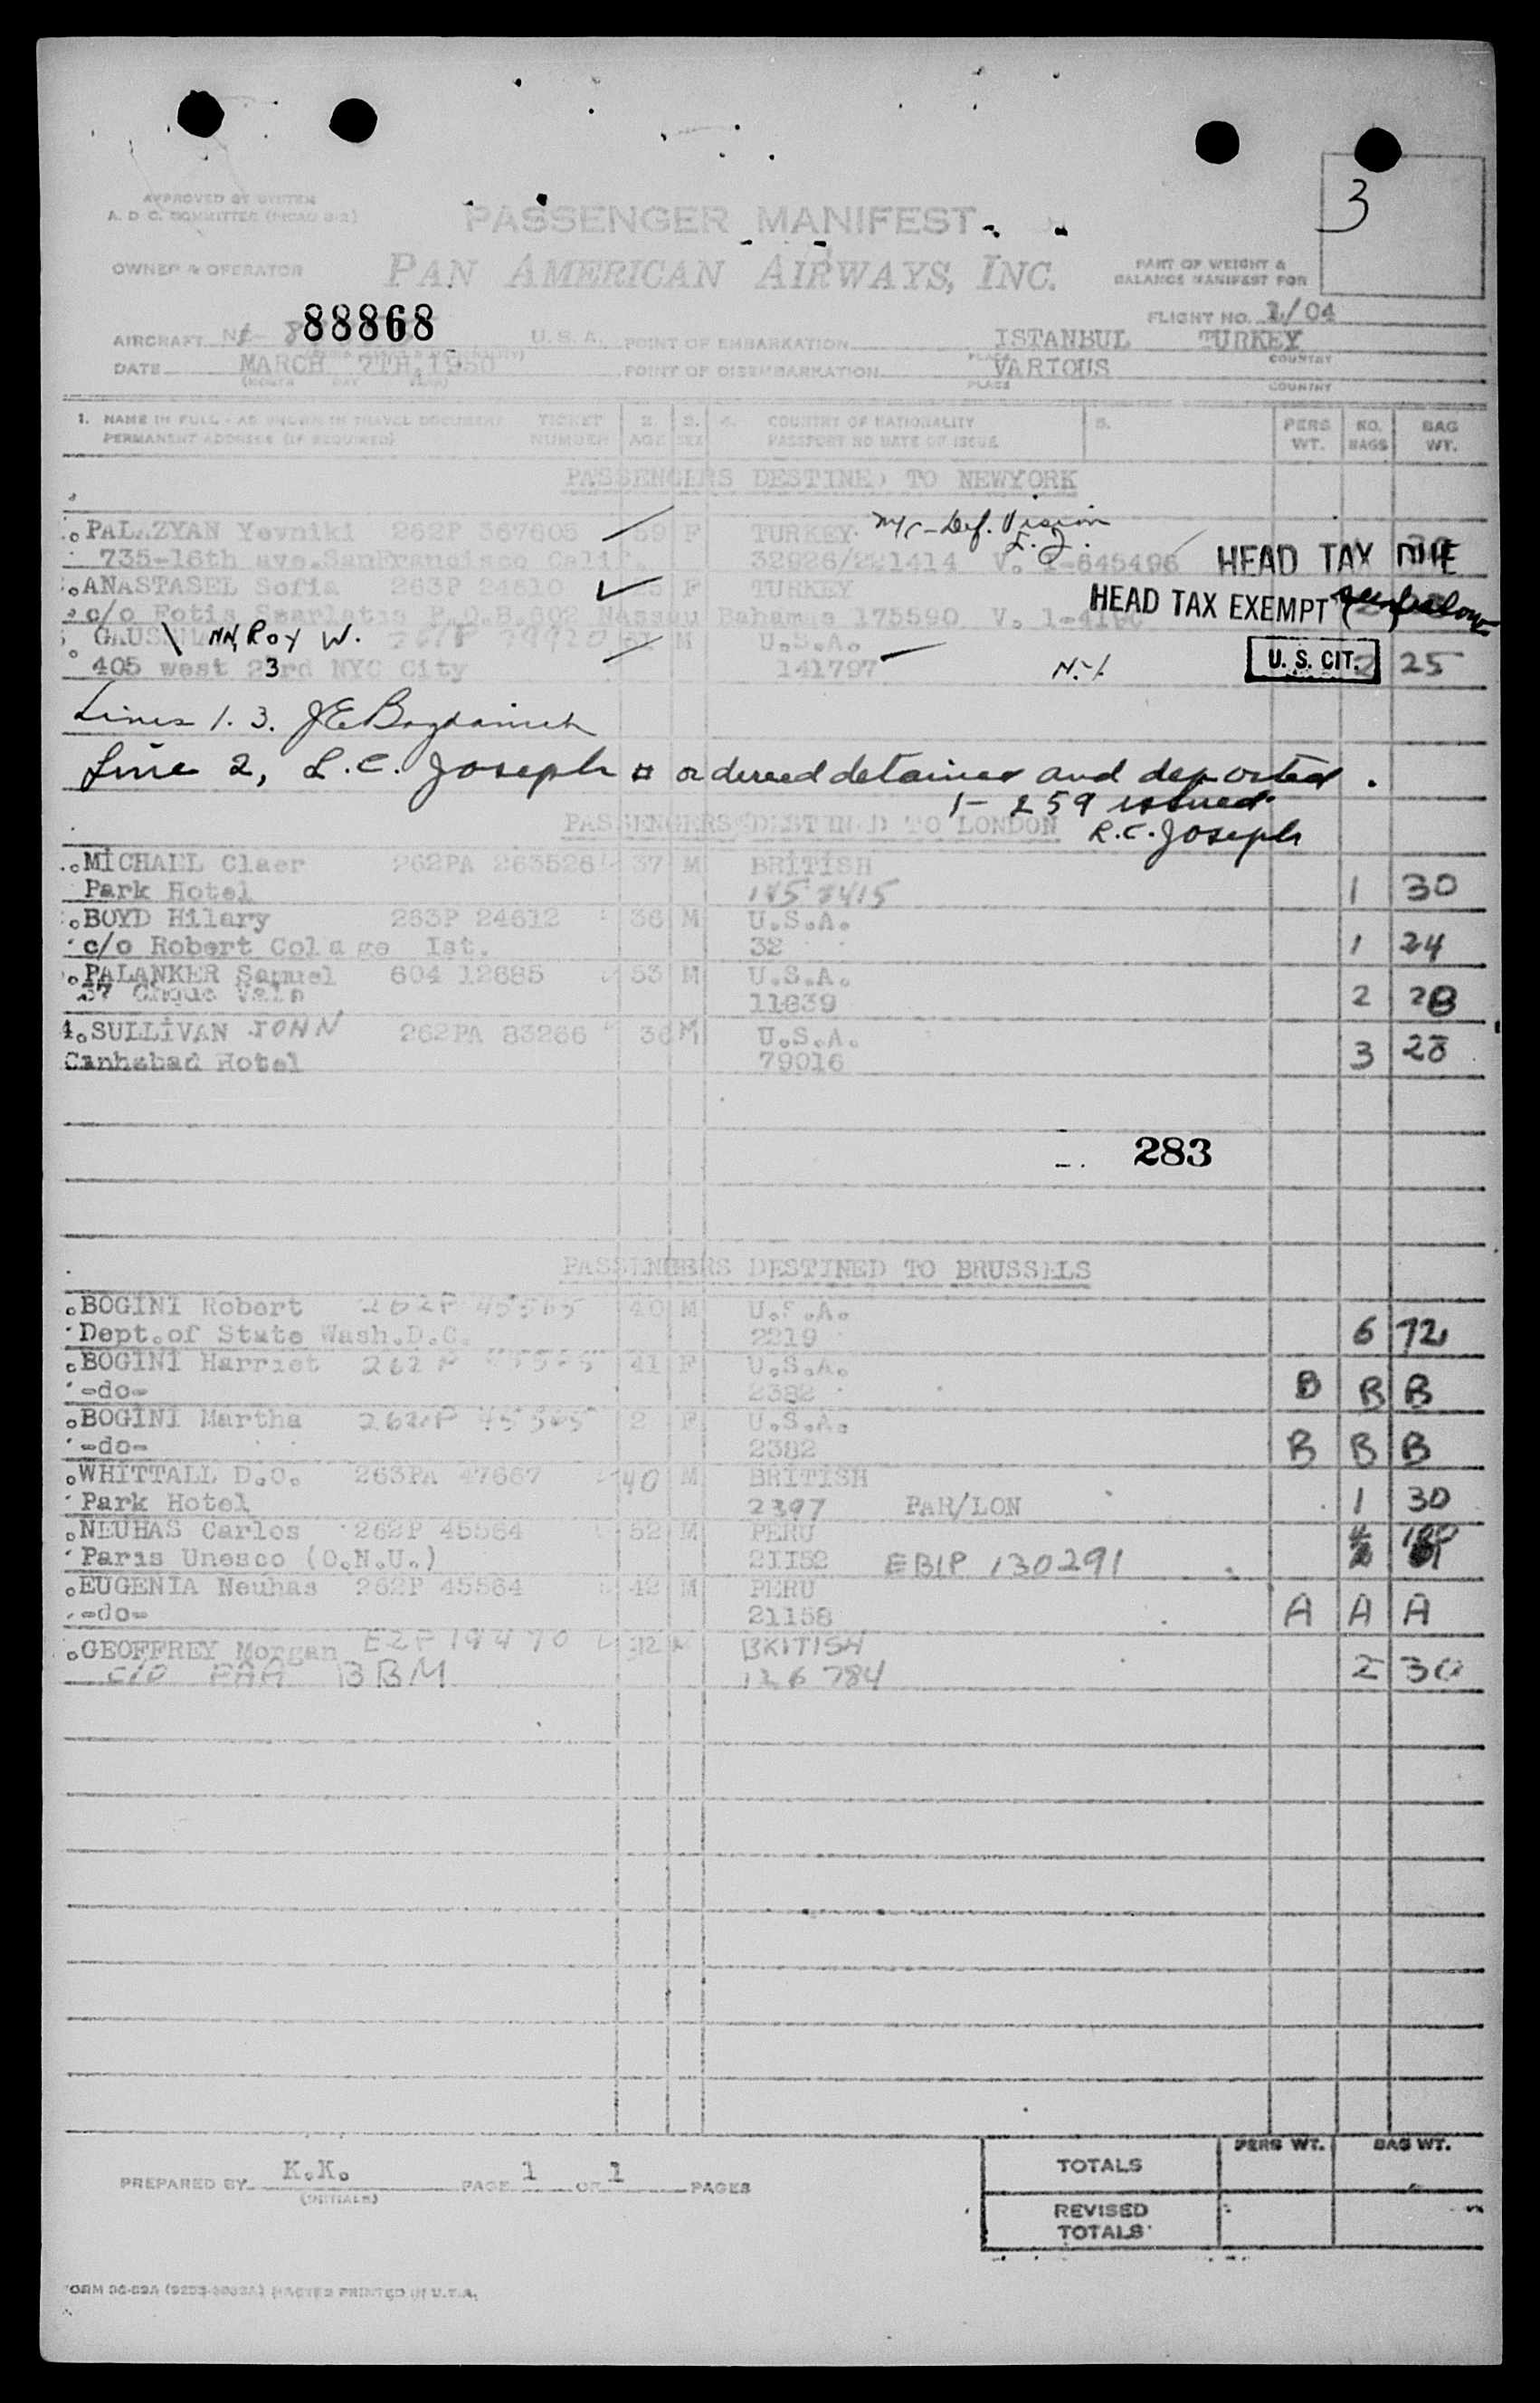 3
APPROVED BY SYSTEM
A. D. C. COMMITTEE
PASSENGER MANIFEST
OWNER & OPERATOR
PAN AMERICAN AIRWAYS, INC.
PART OF WEIGHT &
BALANCE MANIFEST FOR
FLIGHT NO. 1/04
AIRCRAFT 88868 U.S.A. POINT OF EMBARKATION ISTANBUL TURKEY
PLACE COUNTRY
DATE MARCH 7TH, 1950 POINT OF DISEMBARKATION VARIOUS
PLACE COUNTRY
1. NAME IN FULL - AS SHOWN IN TRAVEL DOCUMENT TICKET 2. 3. 4. COUNTRY OF NATIONALITY 5. PERS NO. BAG
PERMANENT ADDRESS (IF REQUIRED) NUMBER AGE SEX PASSPORT NO DATE OF ISSUE WT. BAGS WT.
PASSENGERS DESTINED TO NEWYORK
PALAZYAN Yevniki 262P 367605 59 F TURKEY Def. Vision
735-16th ave.SanFrancisco Calif. 32926/221414 V. 1-645496 HEAD TAX DUE
ANASTASEL Sofia 263P 24610 F TURKEY
c/o Fotis Scarlatis P.O.B.602 Nassau Bahamas 175590 V. HEAD TAX EXEMPT (see below
Roy W. M U.S.A.
405 west 23rd NYC City 141797 U. S. CIT. 2 25
Lines 1. 3.
Line 2, L.C. Joseph ordered detained and deported.
1- 259 issued
PASSENGERS DESTINED TO LONDON R.C. Joseph
MICHALL Claer 262PA 263526 37 M BRITISH
Park Hotel 1 30
BOYD Hilary 263P 24612 36 M U.S.A.
c/o Robert Colage Ist. 32 1 24
PALANKER Samuel 604 12685 53 M U.S.A.
37 11839 2 28
4. SULLIVAN JOHN 262PA 83266 36 M U.S.A.
Canhabad Hotel 79016 3 28
283
PASSENGERS DESTINED TO BRUSSELS
BOGINI Robert 262P 45565 40 M U.S.A.
Dept.of State Wash.D.C. 2219 6 72
BOGINI Harriet 262P 45565 41 F U.S.A.
-do- 2382 B B B
BOGINI Martha 262P 45565 2 F U.S.A.
-do- 2382 B B B
WHITTALL D.O. 263PA 47667 40 M BRITISH
Park Hotel 2397 PAR/LON 1 30
NEUHAS Carlos 262P 45564 52 M PERU
Paris Unesco (O.N.U.) 21152 EBIP 130291
EUGENIA Neuhas 262P 45564 42 M PERU
-do- 21158 A A A
GEOFFREY Morgan 32 M BRITISH
C/O PAA BBM 126784 2 30
PREPARED BY K.K. PAGE 1 OF 1 PAGES
(INITIALS)
PERS WT. BAG WT.
TOTALS
REVISED
TOTALS